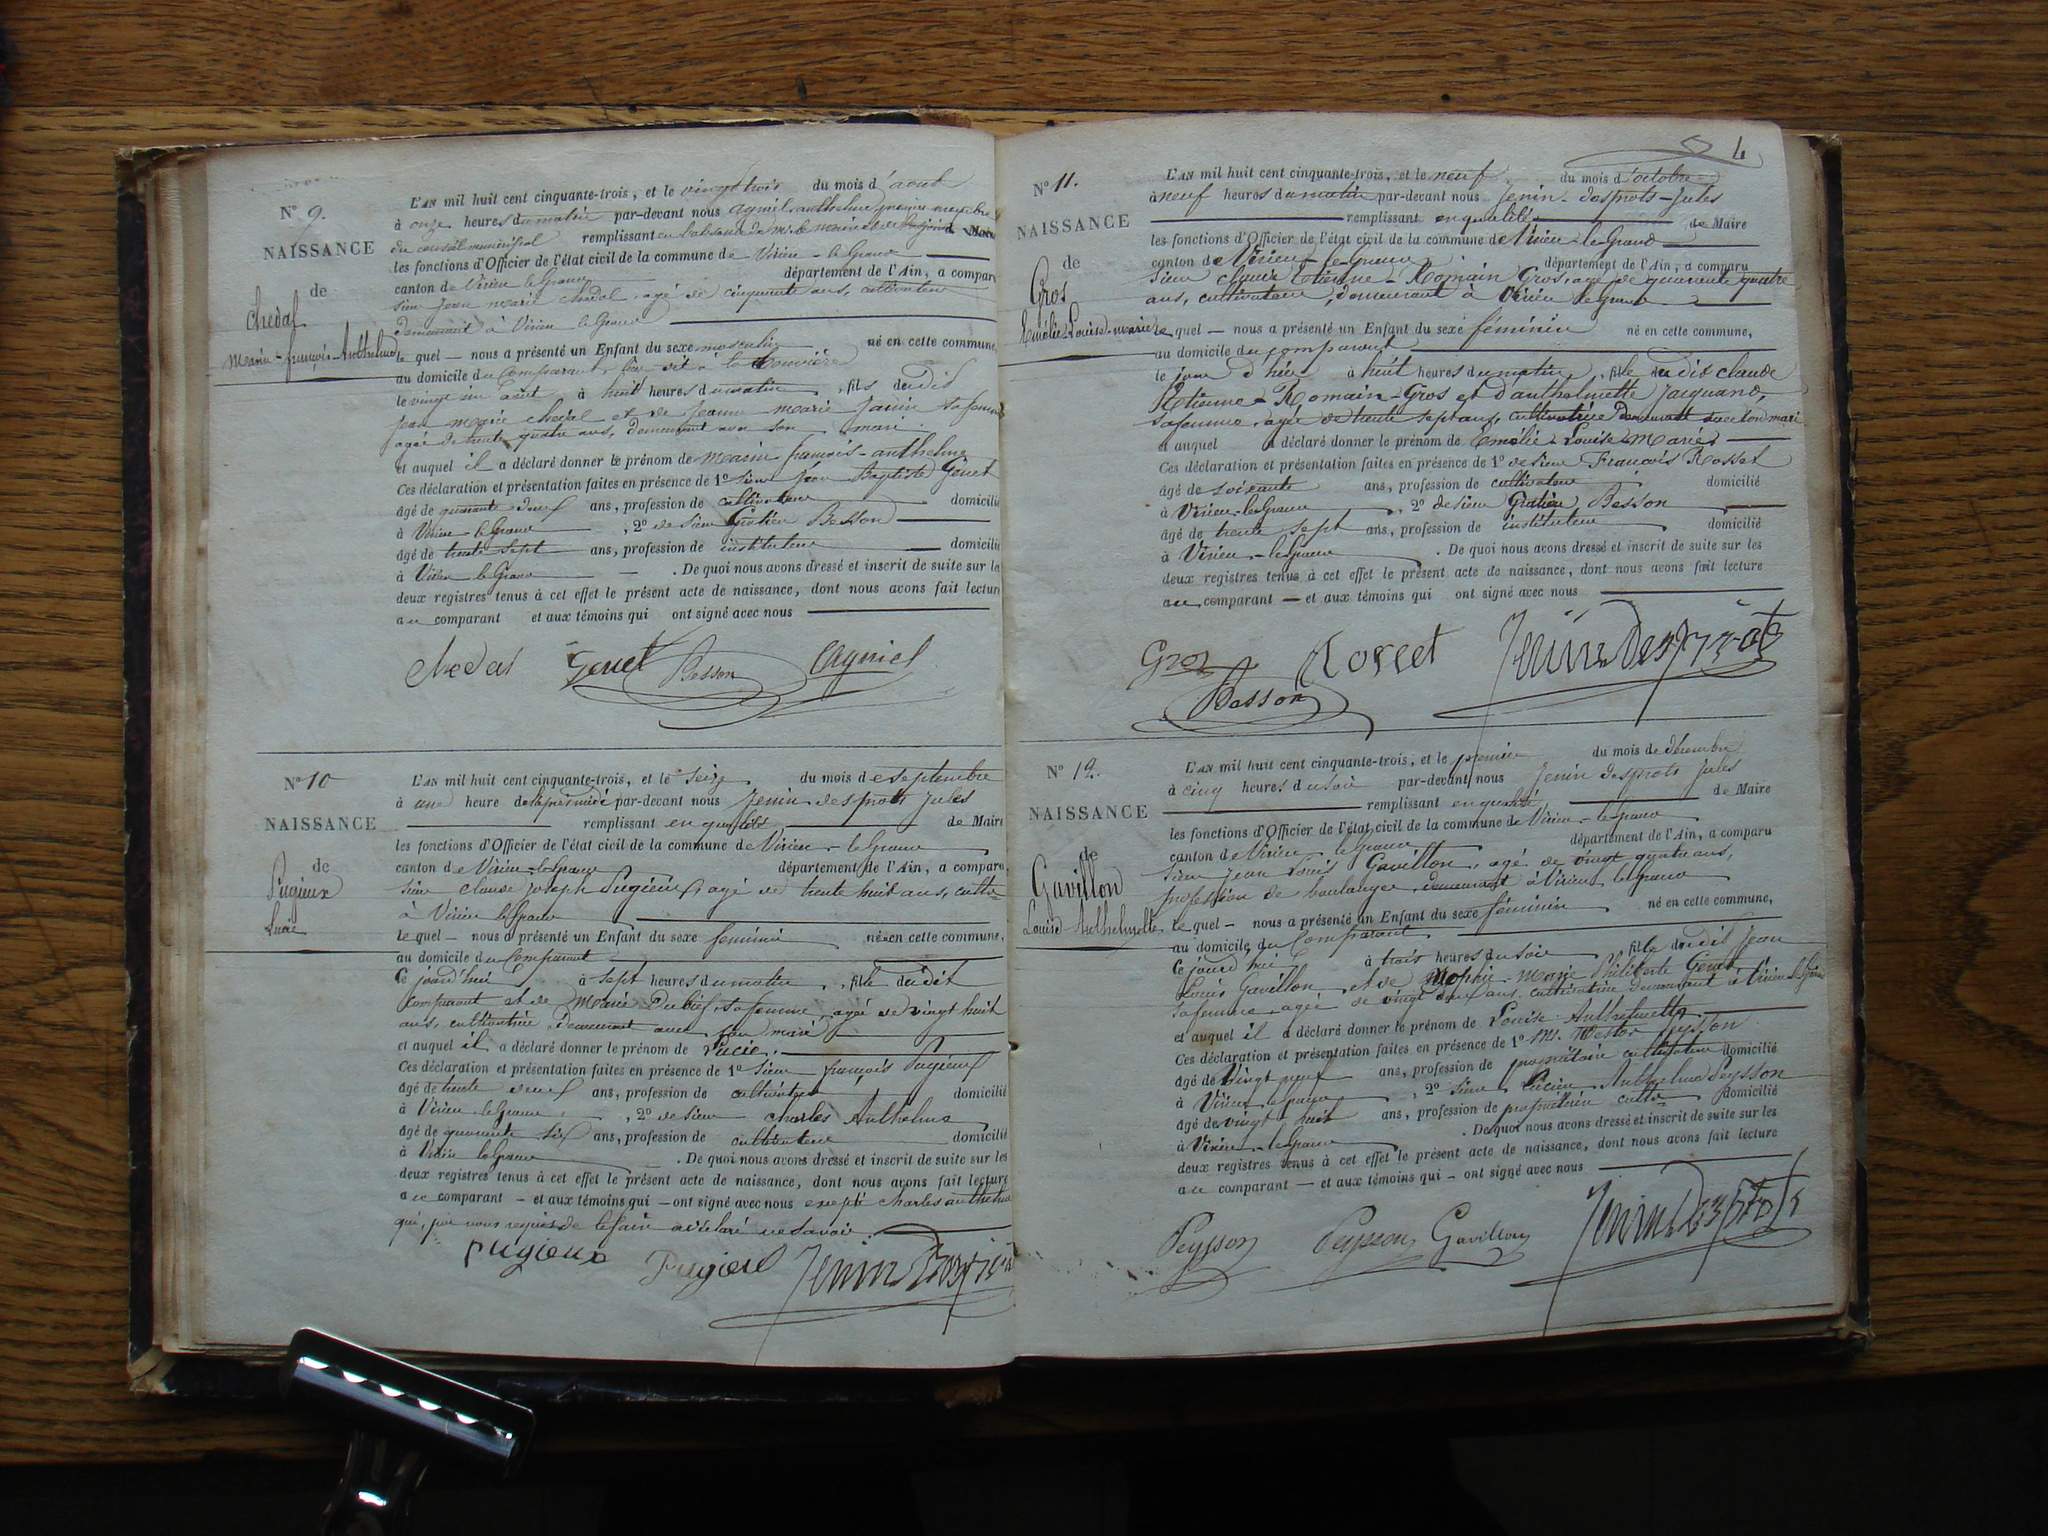 N° 9.
NAISSANCE
de
Chedal
Marin-françois-Anthelme
L'AN mil huit cent cinquante-trois, et le vingt trois du mois d'aout
à onze heures du matin par-devant nous Agniel anthelme premier membre
du conseil municipal remplissant en l'absence de Mr. le maire et de l'adjoint
les fonctions d'Officier de l'état civil de la commune de Virieu-le-Grand
canton de Virieu le Grand département de l'Ain, a comparu
sieur Jean marie chedal agé de cinquante ans, cultivateur
demeurant à Virieu le Grand
lequel nous a présenté un Enfant du sexe masculin né en cette commune,
au domicile du Comparant, lieu dit à la
le vingt un Aout à huit heures du matin, fils dudit
jean marie chedal et de Jeanne marie Janin sa femme
agée de trente quatre ans, demeurant avec son mari
et auquel il a déclaré donner le prénom de Marin françois-anthelme
Ces déclaration et présentation faites en présence de 1° sieur Jean Baptiste Genet
âgé de quarante deux ans, profession de cultivateur domicilié
à Virieu-le-Grand, 2° de sieur Gratien Besson
âgé de trente sept ans, profession de instituteur domicilié
à Virieu le Grand. De quoi nous avons dressé et inscrit de suite sur les
deux registres tenus à cet effet le présent acte de naissance, dont nous avons fait lecture
au comparant et aux témoins qui ont signé avec nous
Chedal Genet Besson Agniel
N° 10
NAISSANCE
de
Pugieux
Lucie
L'AN mil huit cent cinquante-trois, et le seize du mois de septembre
à une heure de l'après midi par-devant nous Jenin desprots Jules
remplissant en qualité de Maire
les fonctions d'Officier de l'état civil de la commune de Virieu-le-Grand
canton de Virieu-le-Grand département de l'Ain, a comparu
sieur claude joseph Pugieux, agé de trente huit ans, cultr
à Virieu le Grand
lequel nous a présenté un Enfant du sexe feminin né en cette commune,
au domicile du Comparant
Ce jourd'hui à sept heures du matin, fille dudit
comparant et de Marie Dubief sa femme, agée de vingt huit
ans, cultivatrice, demeurant avec son mari
et auquel il a déclaré donner le prénom de Lucie.
Ces déclaration et présentation faites en présence de 1° sieur françois Pugieux
âgé de trente deux ans, profession de cultivateur domicilié
à Virieu-le-Grand, 2° de sieur charles Anthelme
âgé de quarante six ans, profession de cultivateur domicilié
à Virieu le Grand. De quoi nous avons dressé et inscrit de suite sur les
deux registres tenus à cet effet le présent acte de naissance, dont nous avons fait lecture
au comparant - et aux témoins qui - ont signé avec nous excepté charles anthelme
qui, par nous requis de le faire a déclaré ne savoir.
Pugieux Pugieux Jenin Desprots
4
N° 11.
NAISSANCE
de
Gros
Emélie-Louise-marie
L'AN mil huit cent cinquante-trois, et le neuf du mois d'octobre
à neuf heures du matin par-devant nous Jenin-desprots-Jules
remplissant en qualité de Maire
les fonctions d'Officier de l'état civil de la commune de Virieu-le-Grand
canton de Virieu-le-Grand département de l'Ain, a comparu
sieur claude Etienne-Romain Gros, agé de quarante quatre
ans, cultivateur, demeurant à Virieu le Grand
lequel nous a présenté un Enfant du sexe féminin né en cette commune,
au domicile du comparant
le jour d'hier à huit heures du matin, fille dudit claude
Etienne-Romain-Gros et d'anthelmette Jacquand,
sa femme, agée de trente sept ans, cultivatrice demeurant avec son mari
et auquel a déclaré donner le prénom de Emélie-Louise-Marie
Ces déclaration et présentation faites en présence de 1° de sieur François Rosset
âgé de soixante ans, profession de cultivateur domicilié
à Virieu-le-Grand, 2° de sieur Gratien Besson
âgé de trente sept ans, profession de instituteur domicilié
à Virieu-le-Grand. De quoi nous avons dressé et inscrit de suite sur les
deux registres tenus à cet effet le présent acte de naissance, dont nous avons fait lecture
au comparant - et aux témoins qui ont signé avec nous
Gros Rosset Jenin Desprots
Besson
N° 12.
NAISSANCE
de
Gavillon
Louise Anthelmette
L'AN mil huit cent cinquante-trois, et le premier du mois de décembre
à cinq heures du soir par-devant nous Jenin desprots Jules
remplissant en qualité de Maire
les fonctions d'Officier de l'état civil de la commune de Virieu-le-Grand
canton de Virieu le Grand département de l'Ain, a comparu
sieur Jean Louis Gavillon, agé de vingt quatre ans,
profession de boulanger, demeurant à Virieu le Grand
lequel - nous a présenté un Enfant du sexe féminin né en cette commune,
au domicile du Comparant.
Ce jourd'hui à trois heures du soir, fille dudit Jean
Louis Gavillon et de Marie Philiberte Genet
sa femme, agée de vingt deux ans, cultivatrice demeurant à Virieu le Grand
et auquel il a déclaré donner le prénom de Louise-Anthelmette
Ces déclaration et présentation faites en présence de 1° Mr. Peysson
âgé de Vingt neuf ans, profession de propriétaire cultivateur domicilié
à Virieu le Grand, 2° sieur Anthelme Peysson
âgé de vingt huit ans, profession de propriétaire cultr domicilié
à Virieu-le-Grand. De quoi nous avons dressé et inscrit de suite sur les
deux registres tenus à cet effet le présent acte de naissance, dont nous avons fait lecture
au comparant - et aux témoins qui - ont signé avec nous
Peysson Peysson Gavillon Jenin Desprots